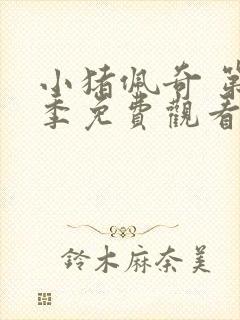 小猪佩奇 第
季免費觀看
鈴木麻奈美